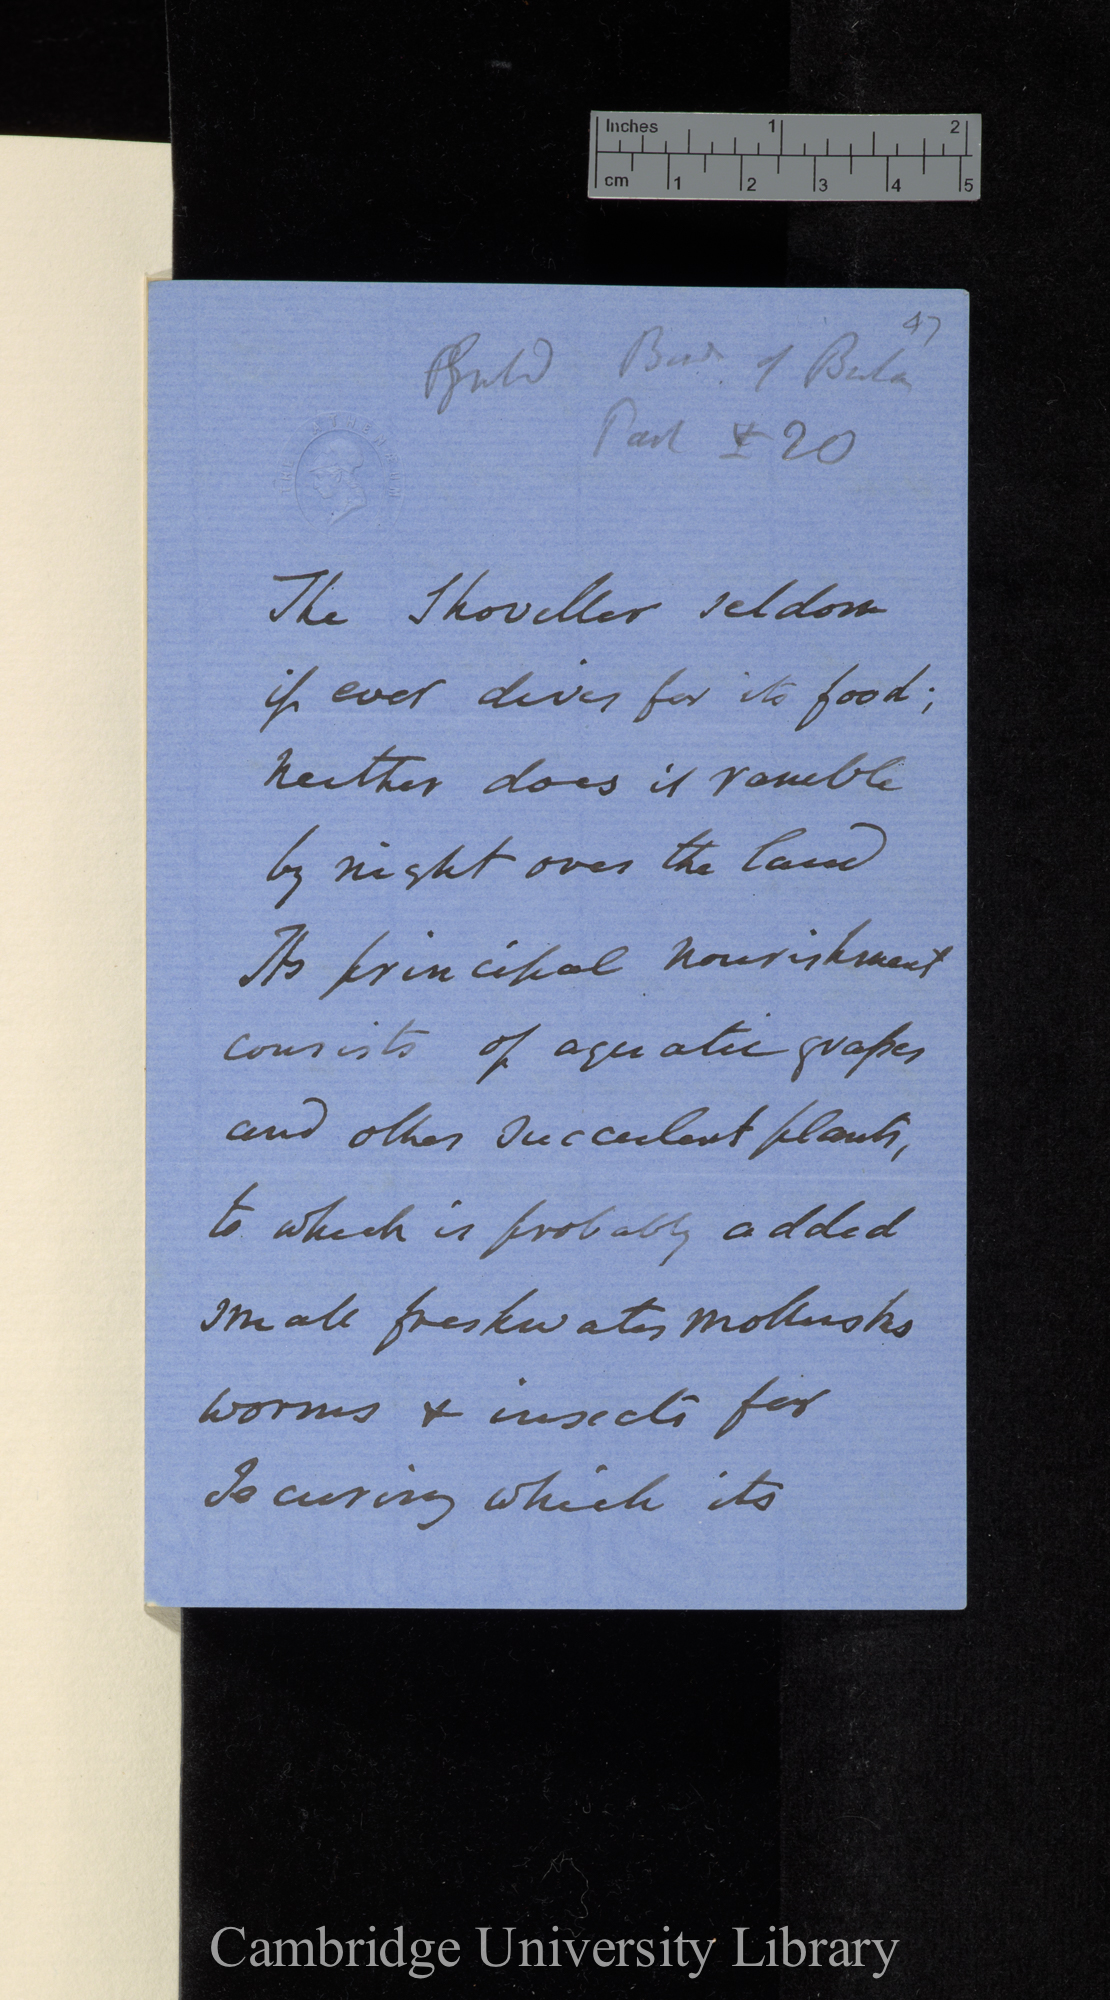 Inches 1 2
cm 1 2 3 4 5
47
Gould Birds of Britain
Part 20
The Shoveller seldom
if ever dives for its food;
neither does it ramble
by night over the land
Its principal nourishment
consists of aquatic grasses
and other succulent plants,
to which is probably added
small freshwater mollusks
worms & insects for
securing which its
Cambridge University Library